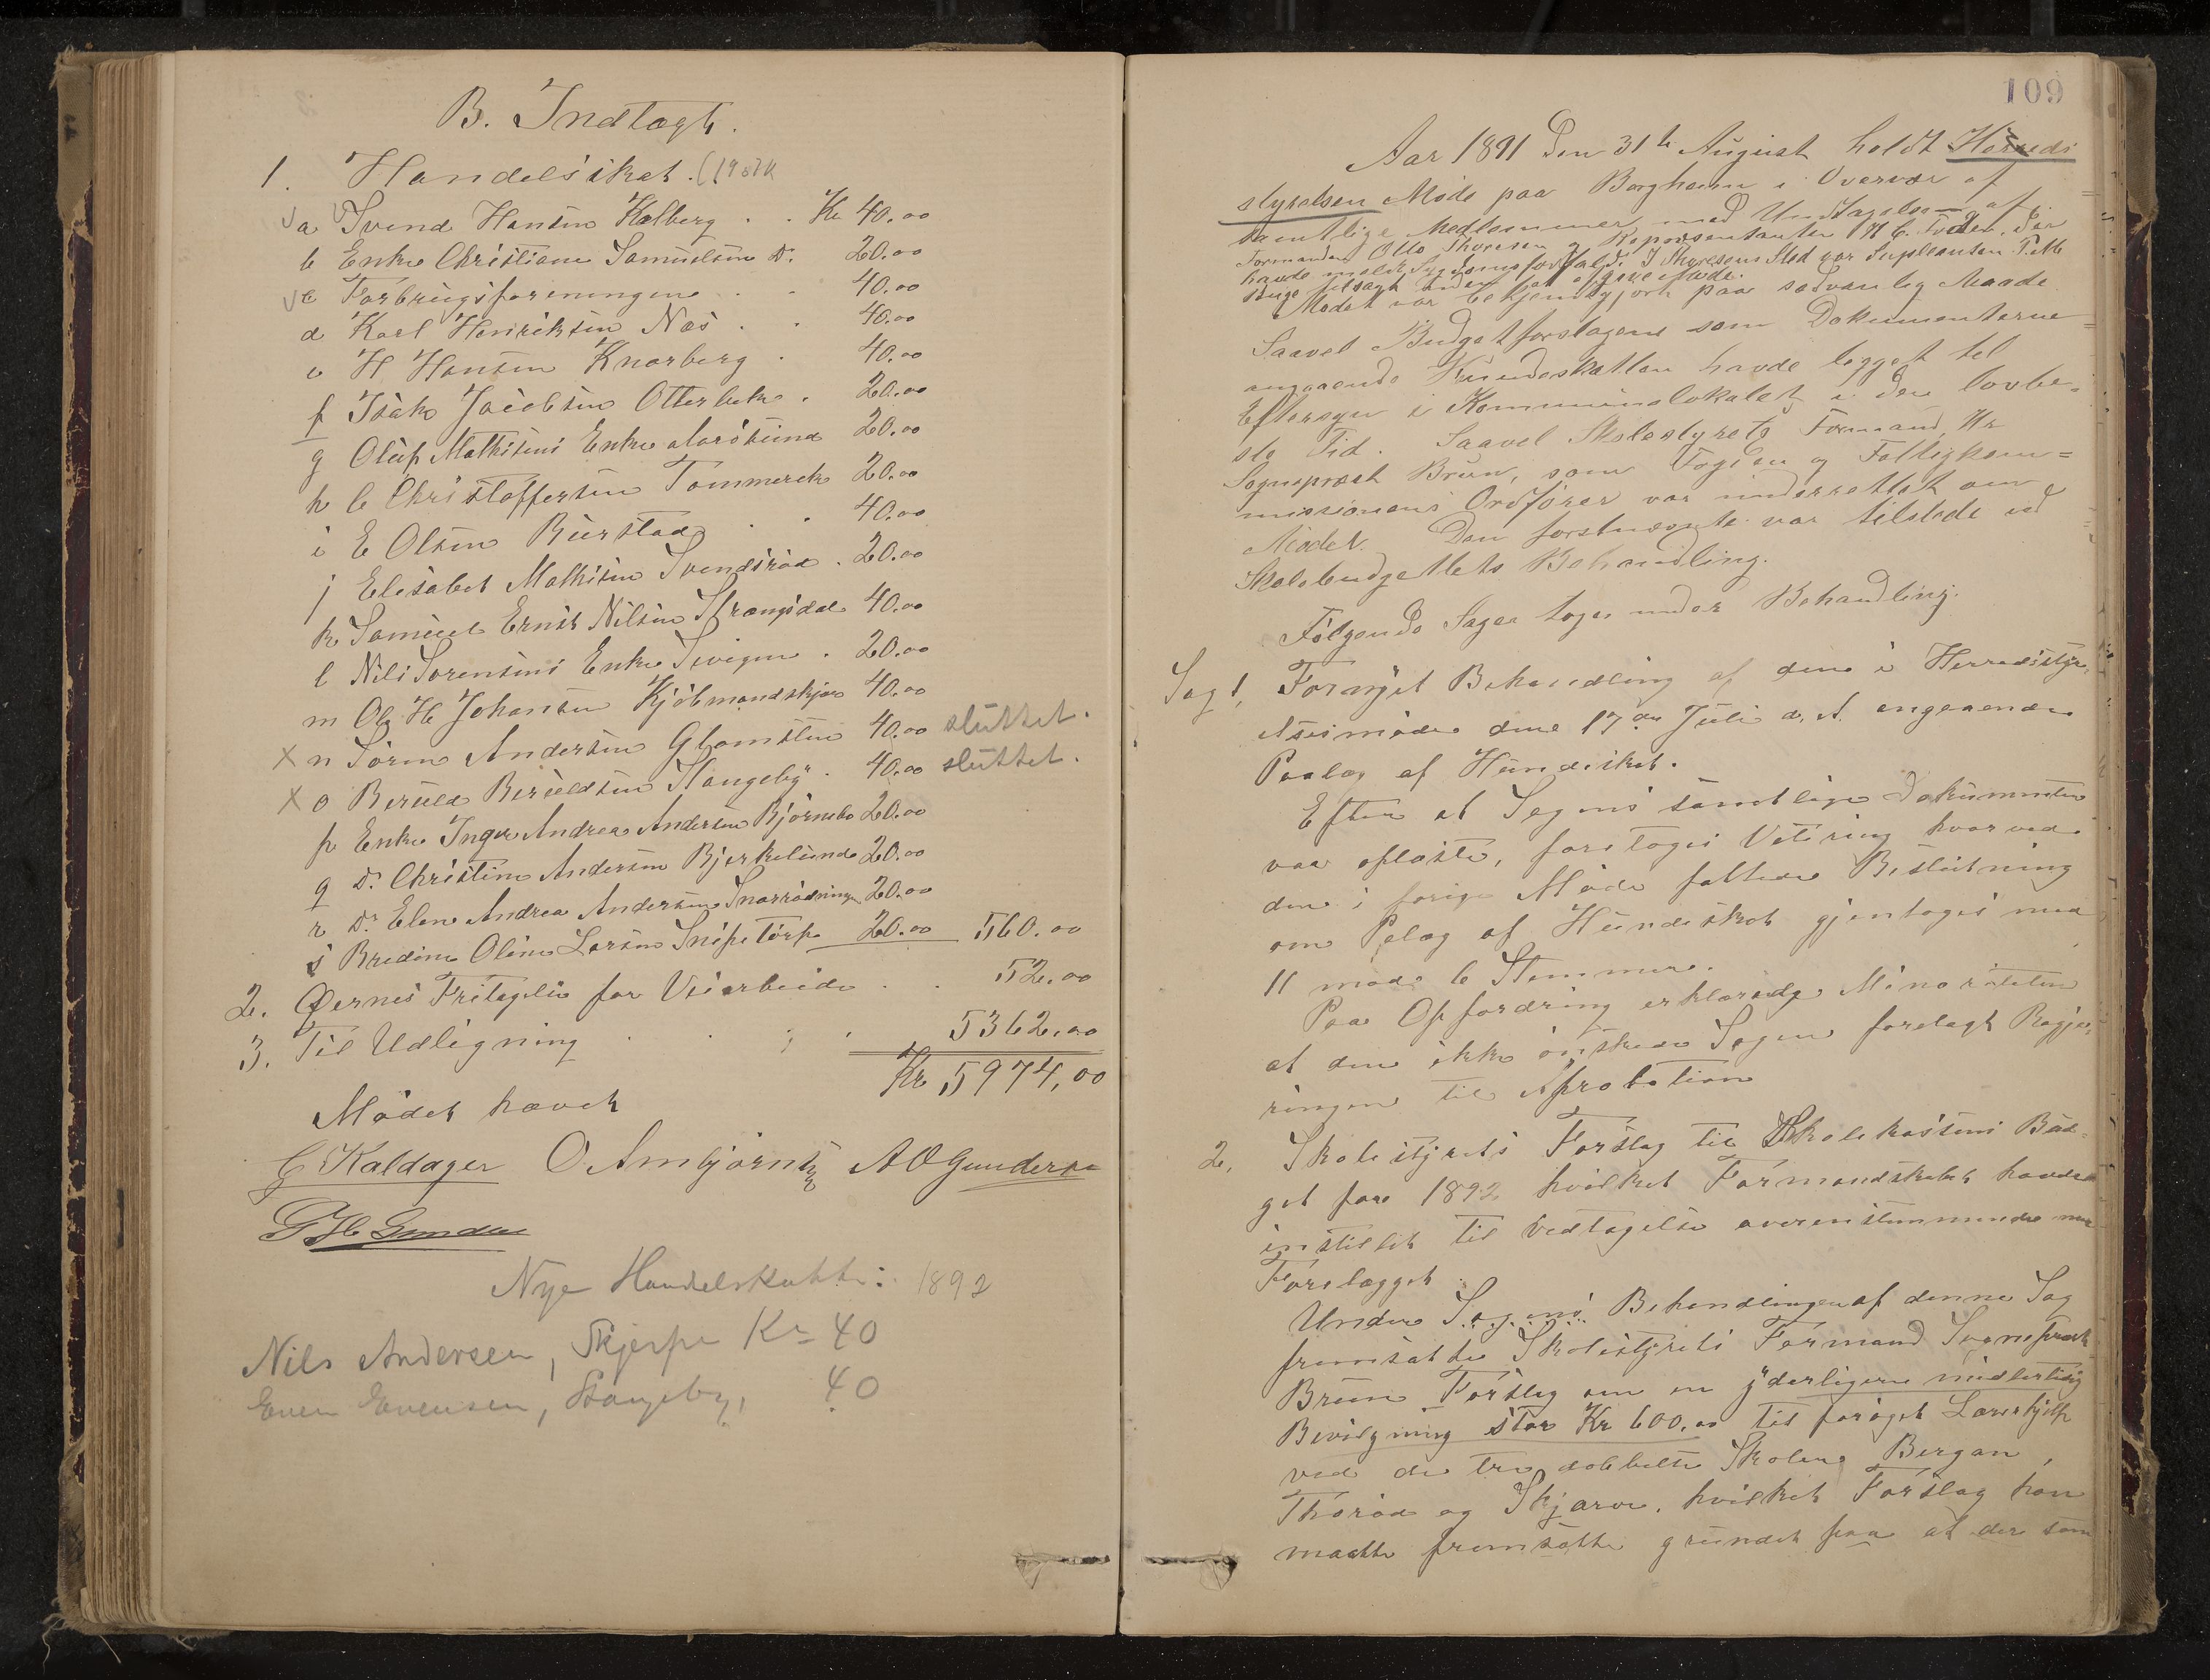 B. Indtægt.
1. Handelsskat.
a Svend Hansen Kalberg . . Kr 40.00
b Enke Christiane Samuelsen Do 20.00
c Forbrugsforeningen . . 40.00
d Karl Henriksen Næs . . 40.00
e H Hansen Knarberg . 40.00
f Isak Jacobsen Otterbek . 20.00
g Oluf Mathisens Enke Aarøsund 20.00
h C Christoffersen Tømmerek 20.00
i E Olsen Buerstad . . 40.00
j Elisabet Mathisen Svendsrød . 20.00
k Samuel Ernst Nilsen Strængsdal 40.00
l Nils Sørensens Enke . 20.00
m Ole H Johansen Kjøbmandskjær 40.00
x n Søren Andersen Glomstein 40.00 sluttet.
x o Beruld Beruldsen Stangeby . 40.00 sluttet.
p Enke Inger Andrea Andersen Bjørnebo 20.00
q Do Christine Andersen Bjerkelund 20.00
r Do Elen Andrea Andersen Snarrødningen 20.00
s Bredine Oline Larsen Snipetorp 20.00 560.00
2. Øernes Fritagelse for Veiarbeide . . 52.00
3. Til Udligning . . . 5362.00
Kr 5974,00
Mødet hævet
C Kaldager O Ambjørnsen A O Gundersen
Nye Handelskatte: 1892
Nils Andersen, Skjerpe Kr 40
Even Evensen, Stangeby, 40
109
Aar 1891 den 31te August holdt Herreds
styrelsen Møde paa Borgheim i Overvær af
samtlige Medlemmer med Undtagelse af
Formanden Otto Thoresen og Repræsentanten H C Tveden, der
havde meldt Sygdomsforfald. I Thoresens Sted var Supleanten P. M.
Bugge tilsagt uden at afgive Møde.
Mødet var bekjendtgjort paa sædvanlig Maade
Saavel Budgetforslagene som Dokumenterne
angaaende Hundeskatten havde ligget til
Eftersyn i Kommunelokalet i den lovbe-
ste Tid. Saavel Skolestyrets Formand, Hr
Sogneprest Bruun, som Fogden og Fattigkom=
missionens Ordfører var underrettet om
Mødet. Den førstnævnte var tilstede ved
Skolebudgettets Behandling.
Følgende Sager toges under Behandling.
Sag 1, Fornyet Behandling af den i Herredsstyr-
elsesmøde den 17de Juli d. A. angaaende
Paalæg af Hundeskat.
Efter at Sagens samtlige Dokumenter
var oplæste, foretoges Votering hvorved
den i forrige Møde fattede Beslutning
om Pelæg af Hundeskat gjentoges med
11 mod 6 Stemmer.
Paa Opfordring erklærede Minoriteten
at den ikke ønskede Sagen forelagt Regje-
ringen til Aprobation
2, Skolestyrets Forslag til Skolekassens Bud-
get for 1892 hvilket Formandskabet havde
instillet til Vedtagelse overensstemmende med
Forelægget
Under Sagens Behandlingen af denne Sag
fremsatte Skolestyrets Formand Sogneprest
Bruun Forslag om en yderligere midlertidig
Bevilgning stor Kr 600.00 til forøget Lærerhjelp
ved de tre dobbelte Skolene Bergan,
Thorød og Skjærve, hvilket Forslag han
maatte fremsætte grundet paa at der som